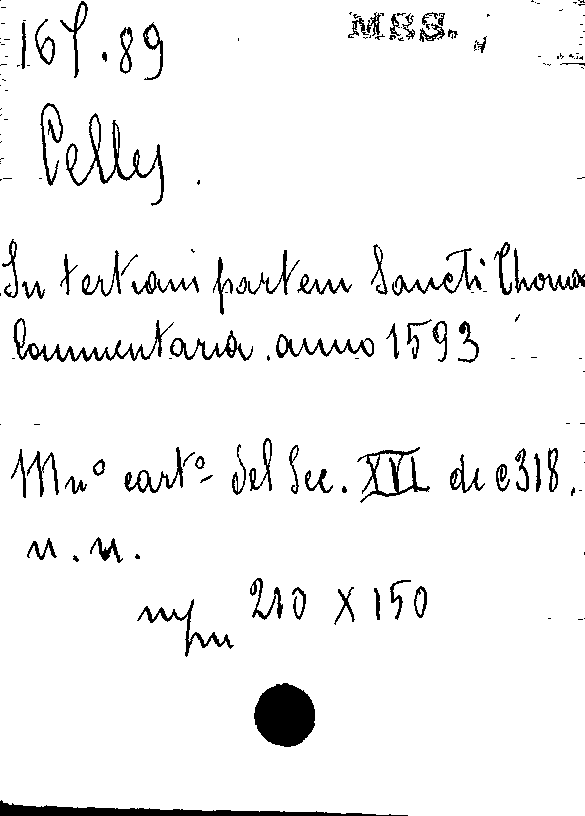 MSS.
167.89
Celles.
In tertiam partem Sancti Thomae
Commentaria. anno 1593
Mnº cartº del Sec. XVI de c 318.
n. n.
mm 210 X 150